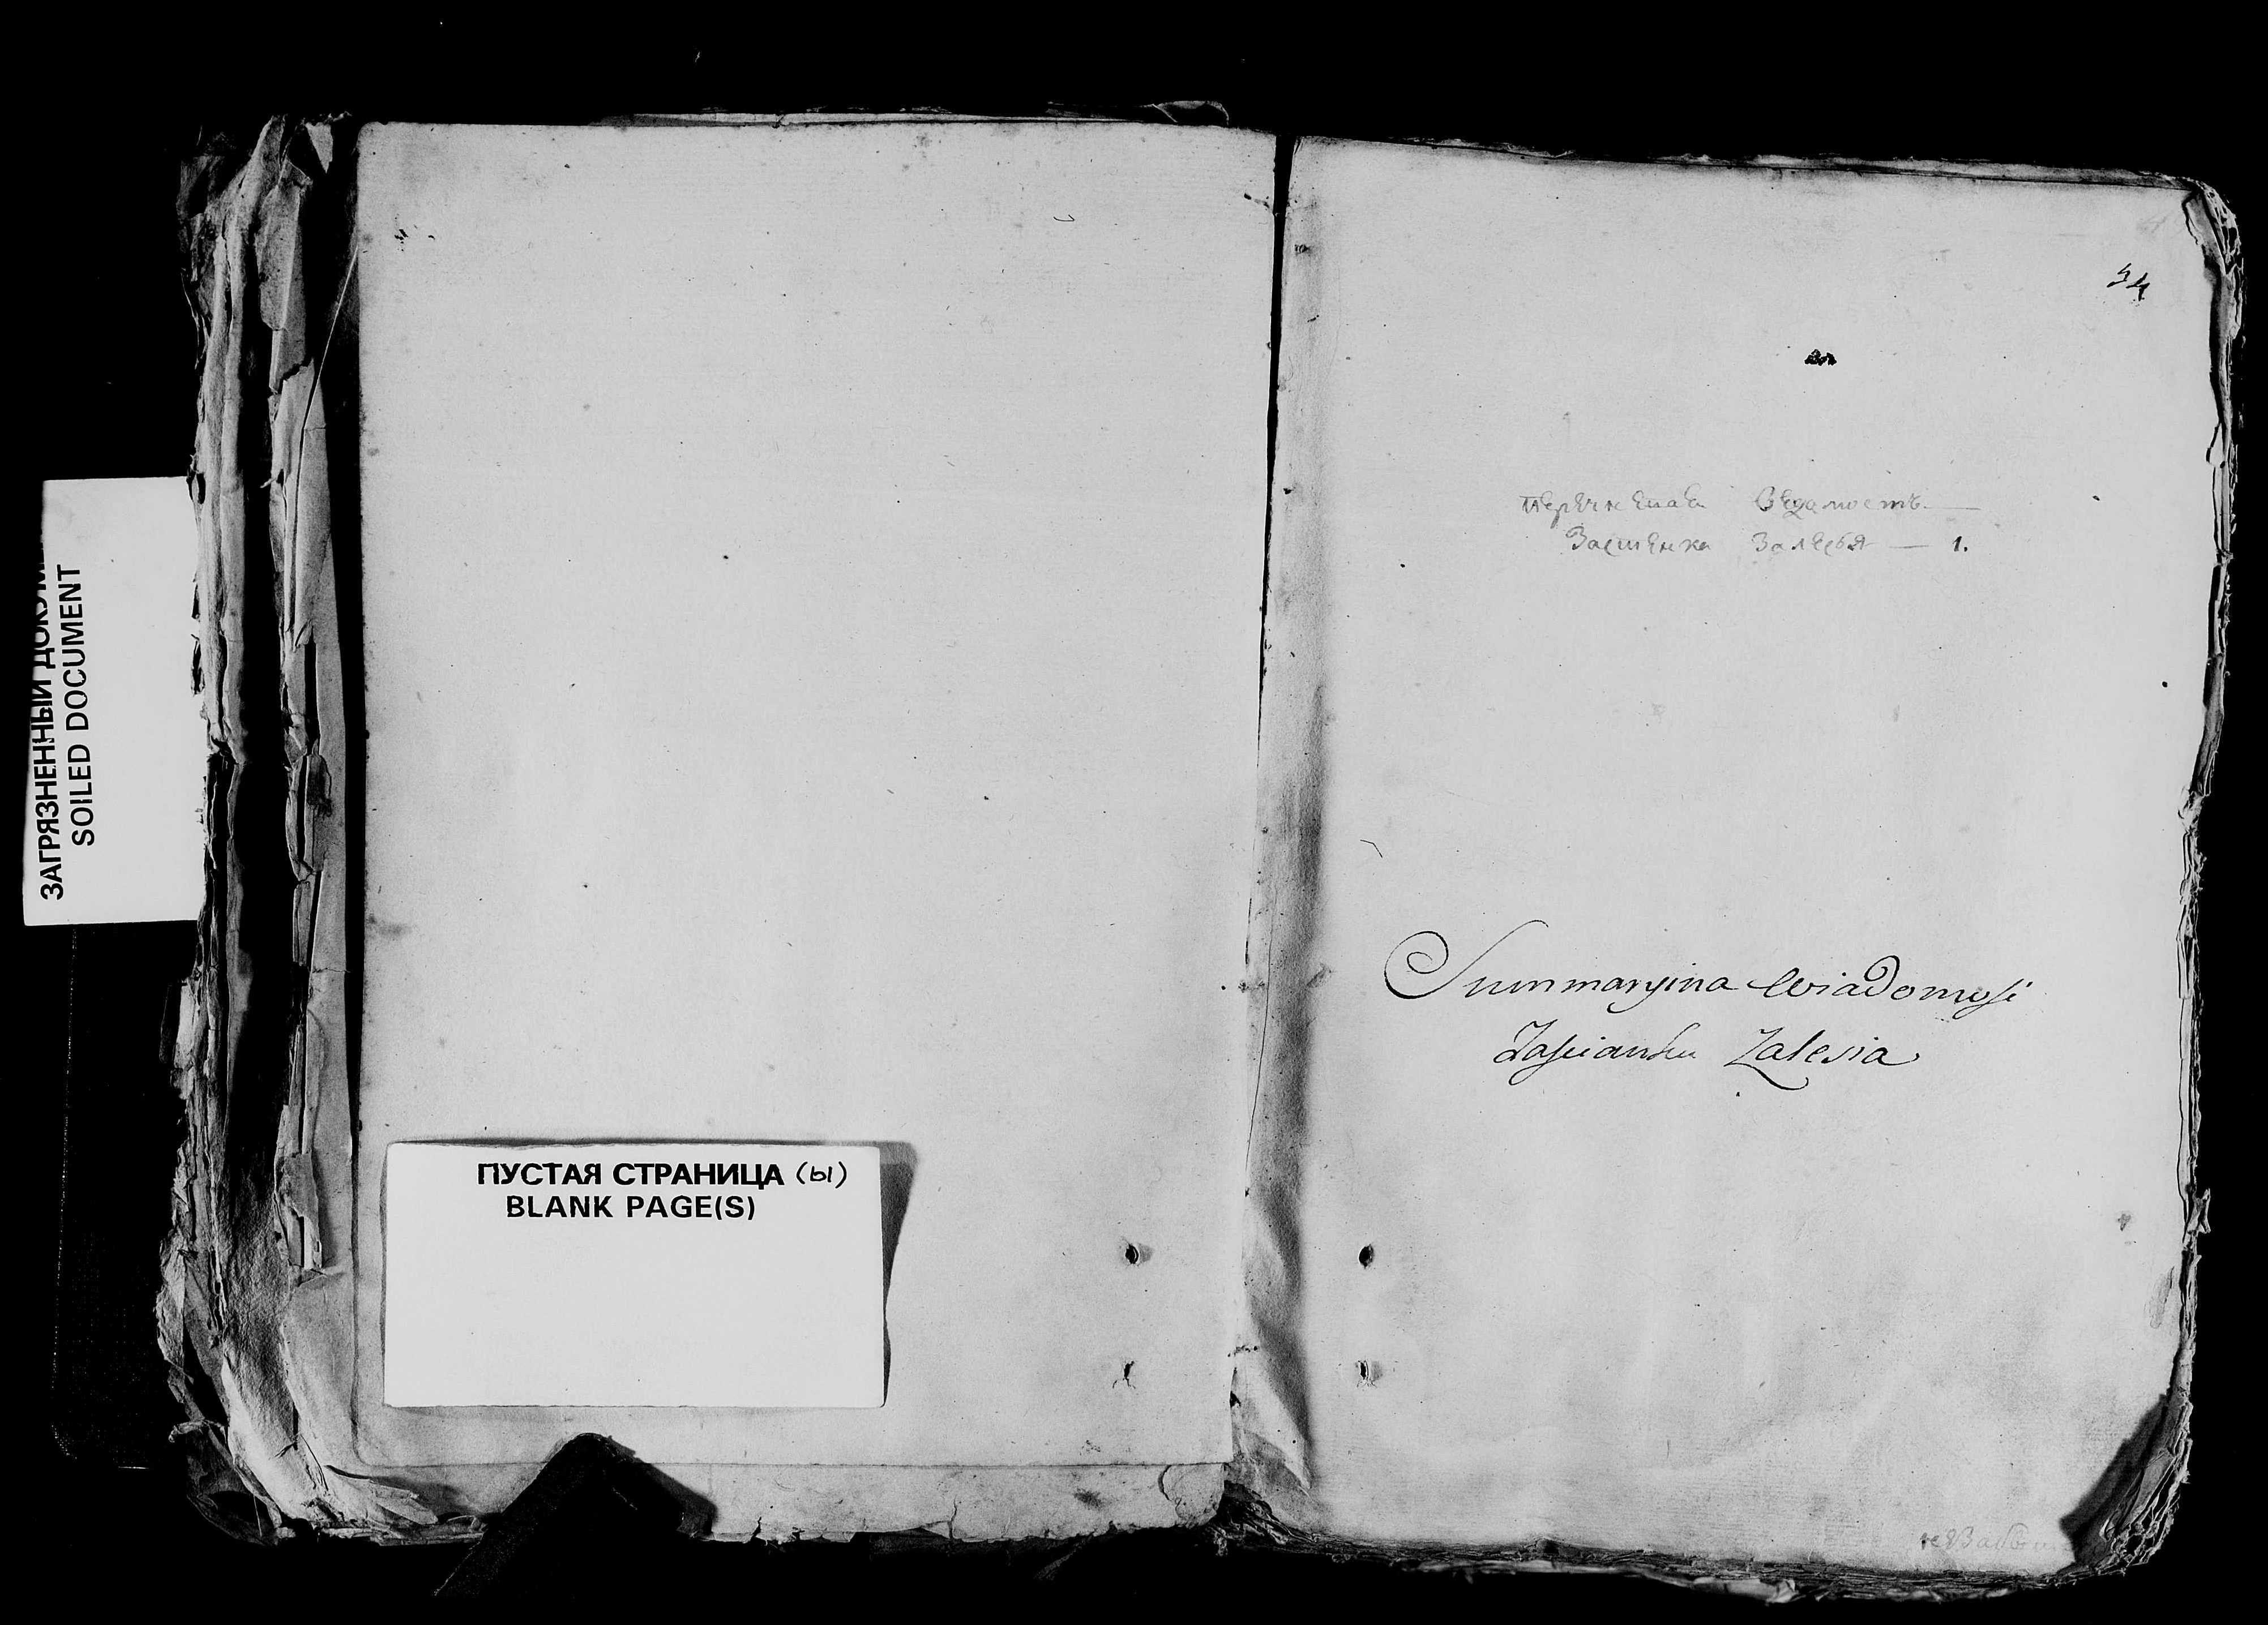 ЗАГРЯЗНЕННЫЙ ДОКУМ
SOILED DOCUMENT
ПУСТАЯ СТРАНИЦА (ы)
BLANK PAGE(S)
54
Ведамость
Застенка Залесья — 1.
Summaryina Wiadomość
Zaścianku Zalesia